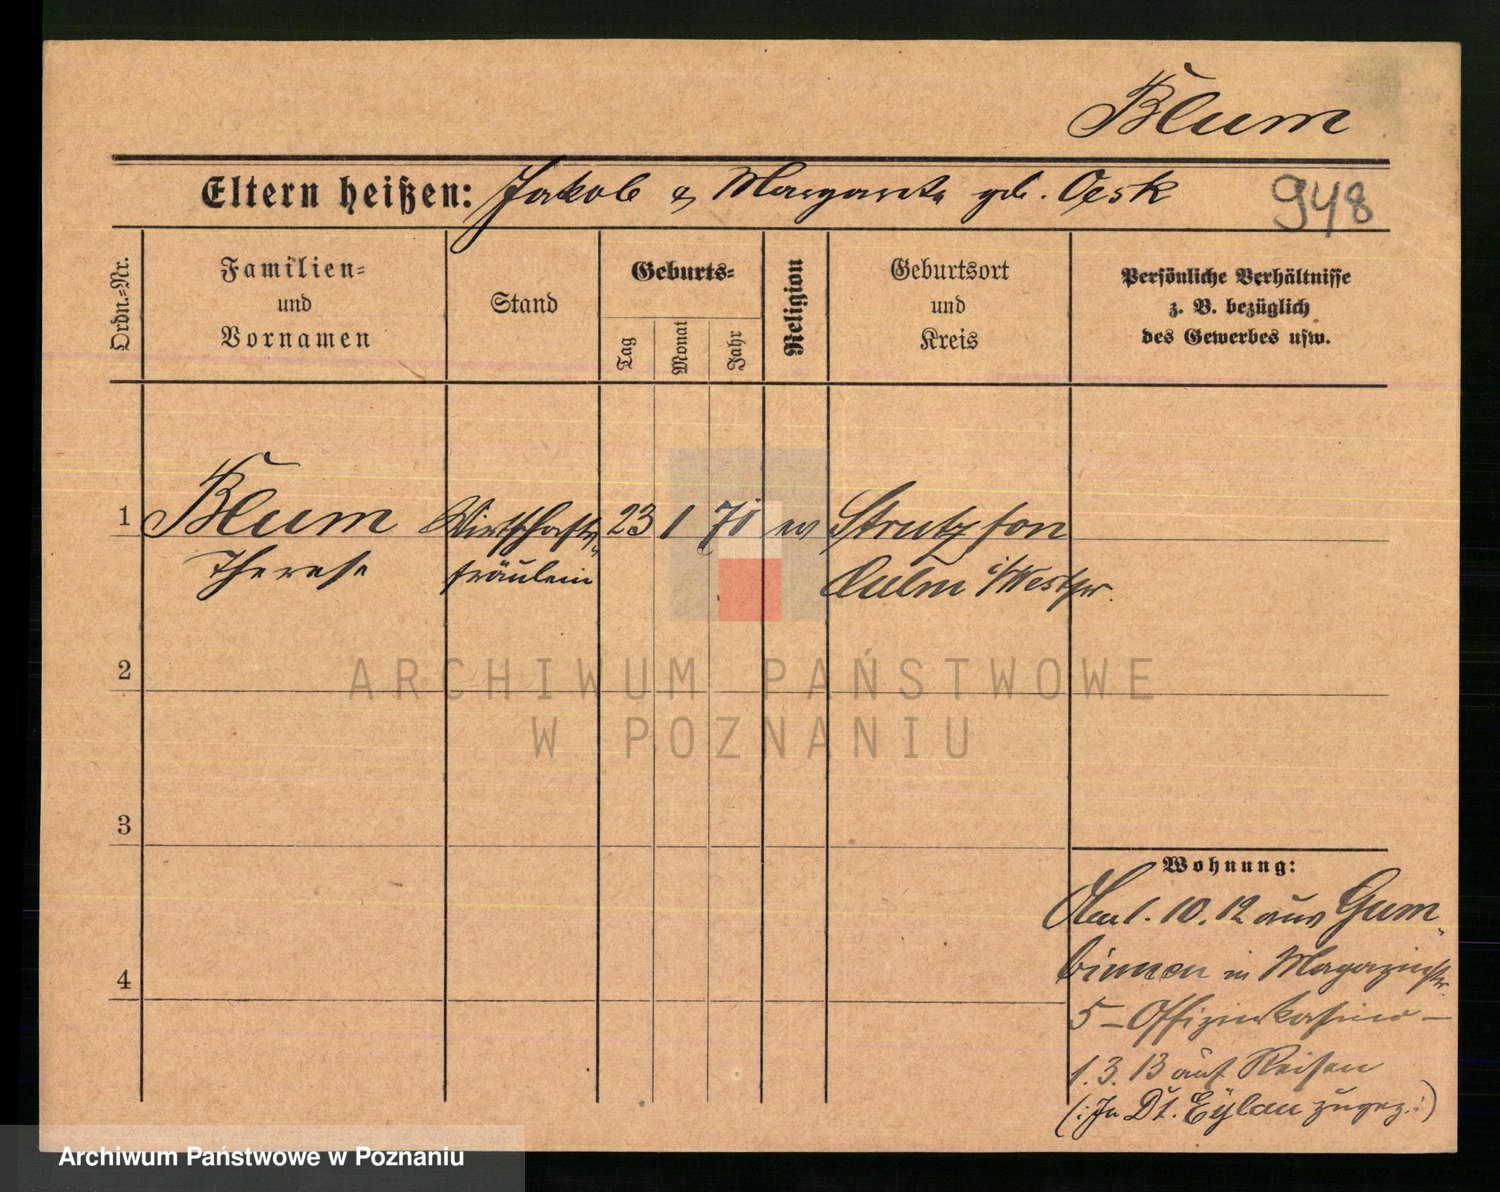 Blum
Eltern heißen: Jakob & Margarete geb. Oesk
948
Ordn.=Nr.
Familien=
und
Vornamen
Stand
Geburts=
Tag
Monat
Jahr
Religion
Geburtsort
und
Kreis
Persönliche Verhältnisse
z. B. bezüglich
des Gewerbes usw.
1 Blum Wirtschafts= 23 1 70 ev Strutzfon
Therese fräulein Culm i/Westpr.
2
3
4
Wohnung:
1. 10. 12 aus Gum=
binnen in Magazinstr.
5 – Offizierkasino –
1. 3. 13 auf Reisen
(: In Dt. Eylau zugez. :)
ARCHIWUM PAŃSTWOWE
W POZNANIU
Archiwum Państwowe w Poznaniu